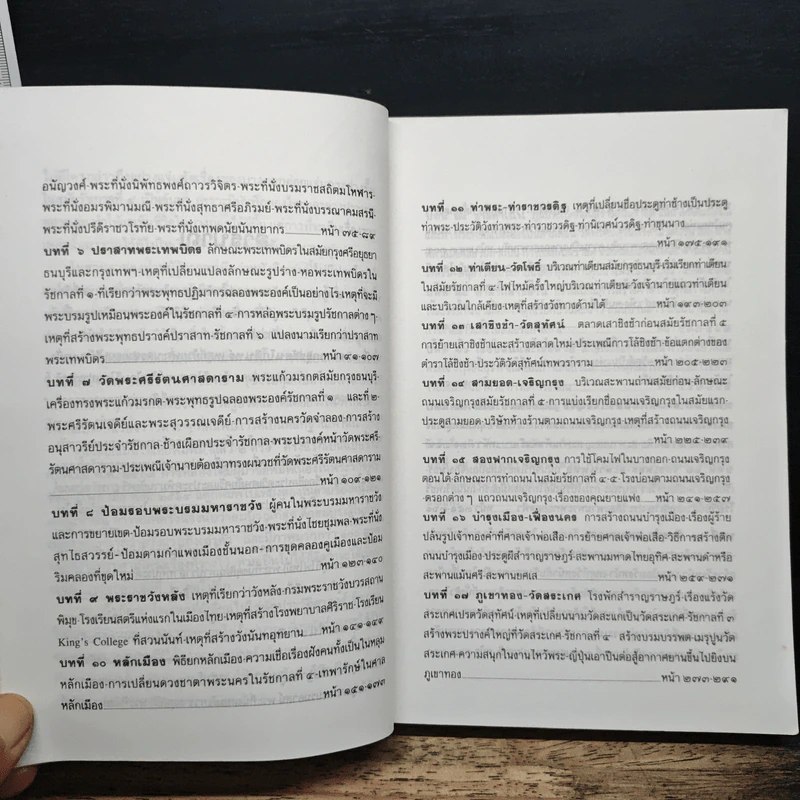 อนัญวงศ์-พระที่นั่งนิพัทธพงศ์ถาวรวิจิตร-พระที่นั่งบรมราชสถิตมโหฬาร-
พระที่นั่งอมรพิมานมณี-พระที่นั่งสุทธาศรีอภิรมย์-พระที่นั่งบรรณาคมสรณี-
พระที่นั่งปรีดีราชวโรทัย-พระที่นั่งเทพดนัยนันทยากร หน้า ๗๕-๘๙
บทที่ ๖ ปราสาทพระเทพบิดร ลักษณะพระเทพบิดรในสมัยกรุงศรีอยุธยา
ธนบุรีและกรุงเทพฯ-เหตุที่เปลี่ยนแปลงลักษณะรูปร่าง-หอพระเทพบิดรใน
รัชกาลที่ ๑-ที่เรียกว่าพระพุทธปฏิมากรฉลองพระองค์เป็นอย่างไร-เหตุที่จะมี
พระบรมรูปเหมือนพระองค์ในรัชกาลที่ ๔-การหล่อพระบรมรูปรัชกาลต่างๆ-
เหตุที่สร้างพระพุทธปรางค์ปราสาท-รัชกาลที่ ๖ แปลงนามเรียกว่าปราสาท
พระเทพบิดร หน้า ๙๑-๑๐๗
บทที่ ๗ วัดพระศรีรัตนศาสดาราม พระแก้วมรกตสมัยกรุงธนบุรี-
เครื่องทรงพระแก้วมรกต-พระพุทธรูปฉลองพระองค์รัชกาลที่ ๑ และที่ ๒-
พระศรีรัตนเจดีย์และพระสุวรรณเจดีย์-การสร้างนครวัดจำลอง-การสร้าง
อนุสาวรีย์ประจำรัชกาล-ช้างเผือกประจำรัชกาล-พระปรางค์หน้าวัดพระศรี-
รัตนศาสดาราม-ประเพณีเจ้านายต้องมาทรงผนวชที่วัดพระศรีรัตนศาสดาราม
หน้า ๑๐๙-๑๒๑
บทที่ ๘ ป้อมรอบพระบรมมหาราชวัง ผู้คนในพระบรมมหาราชวัง
และการขยายเขต-ป้อมรอบพระบรมมหาราชวัง-พระที่นั่งไชยชุมพล-พระที่นั่ง
สุทไธสวรรย์-ป้อมตามกำแพงเมืองชั้นนอก-การขุดคลองคูเมืองและป้อม
ริมคลองที่ขุดใหม่ หน้า ๑๒๓-๑๔๐
บทที่ ๙ พระราชวังหลัง เหตุที่เรียกว่าวังหลัง-กรมพระราชวังบวรสถาน
พิมุข-โรงเรียนสตรีแห่งแรกในเมืองไทย-เหตุที่สร้างโรงพยาบาลศิริราช-โรงเรียน
King's College ที่สวนนันท์-เหตุที่สร้างวังนันทอุทยาน หน้า ๑๔๑-๑๔๙
บทที่ ๑๐ หลักเมือง พิธียกหลักเมือง-ความเชื่อเรื่องฝังคนทั้งเป็นในหลุม
หลักเมือง-การเปลี่ยนดวงชาตาพระนครในรัชกาลที่ ๔-เทพารักษ์ในศาล
หลักเมือง หน้า ๑๕๑-๑๗๓
บทที่ ๑๑ ท่าพระ-ท่าราชวรดิฐ เหตุที่เปลี่ยนชื่อประตูท่าช้างเป็นประตู
ท่าพระ-ประวัติวังท่าพระ-ท่าราชวรดิฐ-ท่านิเวศน์วรดิฐ-ท่าขุนนาง
หน้า ๑๗๕-๑๙๑
บทที่ ๑๒ ท่าเตียน-วัดโพธิ์ บริเวณท่าเตียนสมัยกรุงธนบุรี-เริ่มเรียกท่าเตียน
ในสมัยรัชกาลที่ ๔-ไฟไหม้ครั้งใหญ่บริเวณท่าเตียน-วังเจ้านายแถวท่าเตียน
และบริเวณใกล้เคียง-เหตุที่สร้างวังทางด้านใต้ หน้า ๑๙๓-๒๐๓
บทที่ ๑๓ เสาชิงช้า-วัดสุทัศน์ ตลาดเสาชิงช้าก่อนสมัยรัชกาลที่ ๕
การย้ายเสาชิงช้าและสร้างตลาดใหม่-ประเพณีการโล้ชิงช้า-ข้อแตกต่างของ
ตำราโล้ชิงช้า-ประวัติวัดสุทัศน์เทพวราราม หน้า ๒๐๕-๒๒๓
บทที่ ๑๔ สามยอด-เจริญกรุง บริเวณสะพานถ่านสมัยก่อน-ลักษณะ
ถนนเจริญกรุงสมัยรัชกาลที่ ๕-การแบ่งเรียกชื่อถนนเจริญกรุงในสมัยแรก-
ประตูสามยอด-บริษัทห้างร้านตามถนนเจริญกรุง-เหตุที่สร้างถนนเจริญกรุง
หน้า ๒๒๕-๒๓๙
บทที่ ๑๕ สองฟากเจริญกรุง การใช้โคมไฟในบางกอก-ถนนเจริญกรุง
ตอนใต้-ลักษณะการทำถนนในสมัยรัชกาลที่ ๔-๕-โรงบ่อนตามถนนเจริญกรุง
-ตรอกต่างๆ แถวถนนเจริญกรุง-เรื่องของคุณยายแฟง หน้า ๒๔๑-๒๕๗
บทที่ ๑๖ บำรุงเมือง-เฟื่องนคร การสร้างถนนบำรุงเมือง-เรื่องผู้ร้าย
ปล้นรูปเจ้าทองคำที่ศาลเจ้าพ่อเสือ-การย้ายศาลเจ้าพ่อเสือ-วิธีการสร้างตึก
ถนนบำรุงเมือง-ประตูผีสำราญราษฎร์-สะพานมหาดไทยอุทิศ-สะพานดำหรือ
สะพานแม้นศรี-สะพานยศเส หน้า ๒๕๙-๒๗๑
บทที่ ๑๗ ภูเขาทอง-วัดสระเกศ โรงพักสำราญราษฎร์-เรื่องแร้งวัด
สระเกศเปรตวัดสุทัศน์-เหตุที่เปลี่ยนนามวัดสะแกเป็นวัดสระเกศ-รัชกาลที่ ๓
สร้างพระปรางค์ใหญ่ที่วัดสระเกศ-รัชกาลที่ ๔ สร้างบรมบรรพต-เมรุปูนวัด
สระเกศ-ความสนุกในงานไหว้พระ-ญี่ปุ่นเอาปืนต่อสู้อากาศยานขึ้นไปยิงบน
ภูเขาทอง หน้า ๒๗๓-๒๙๑